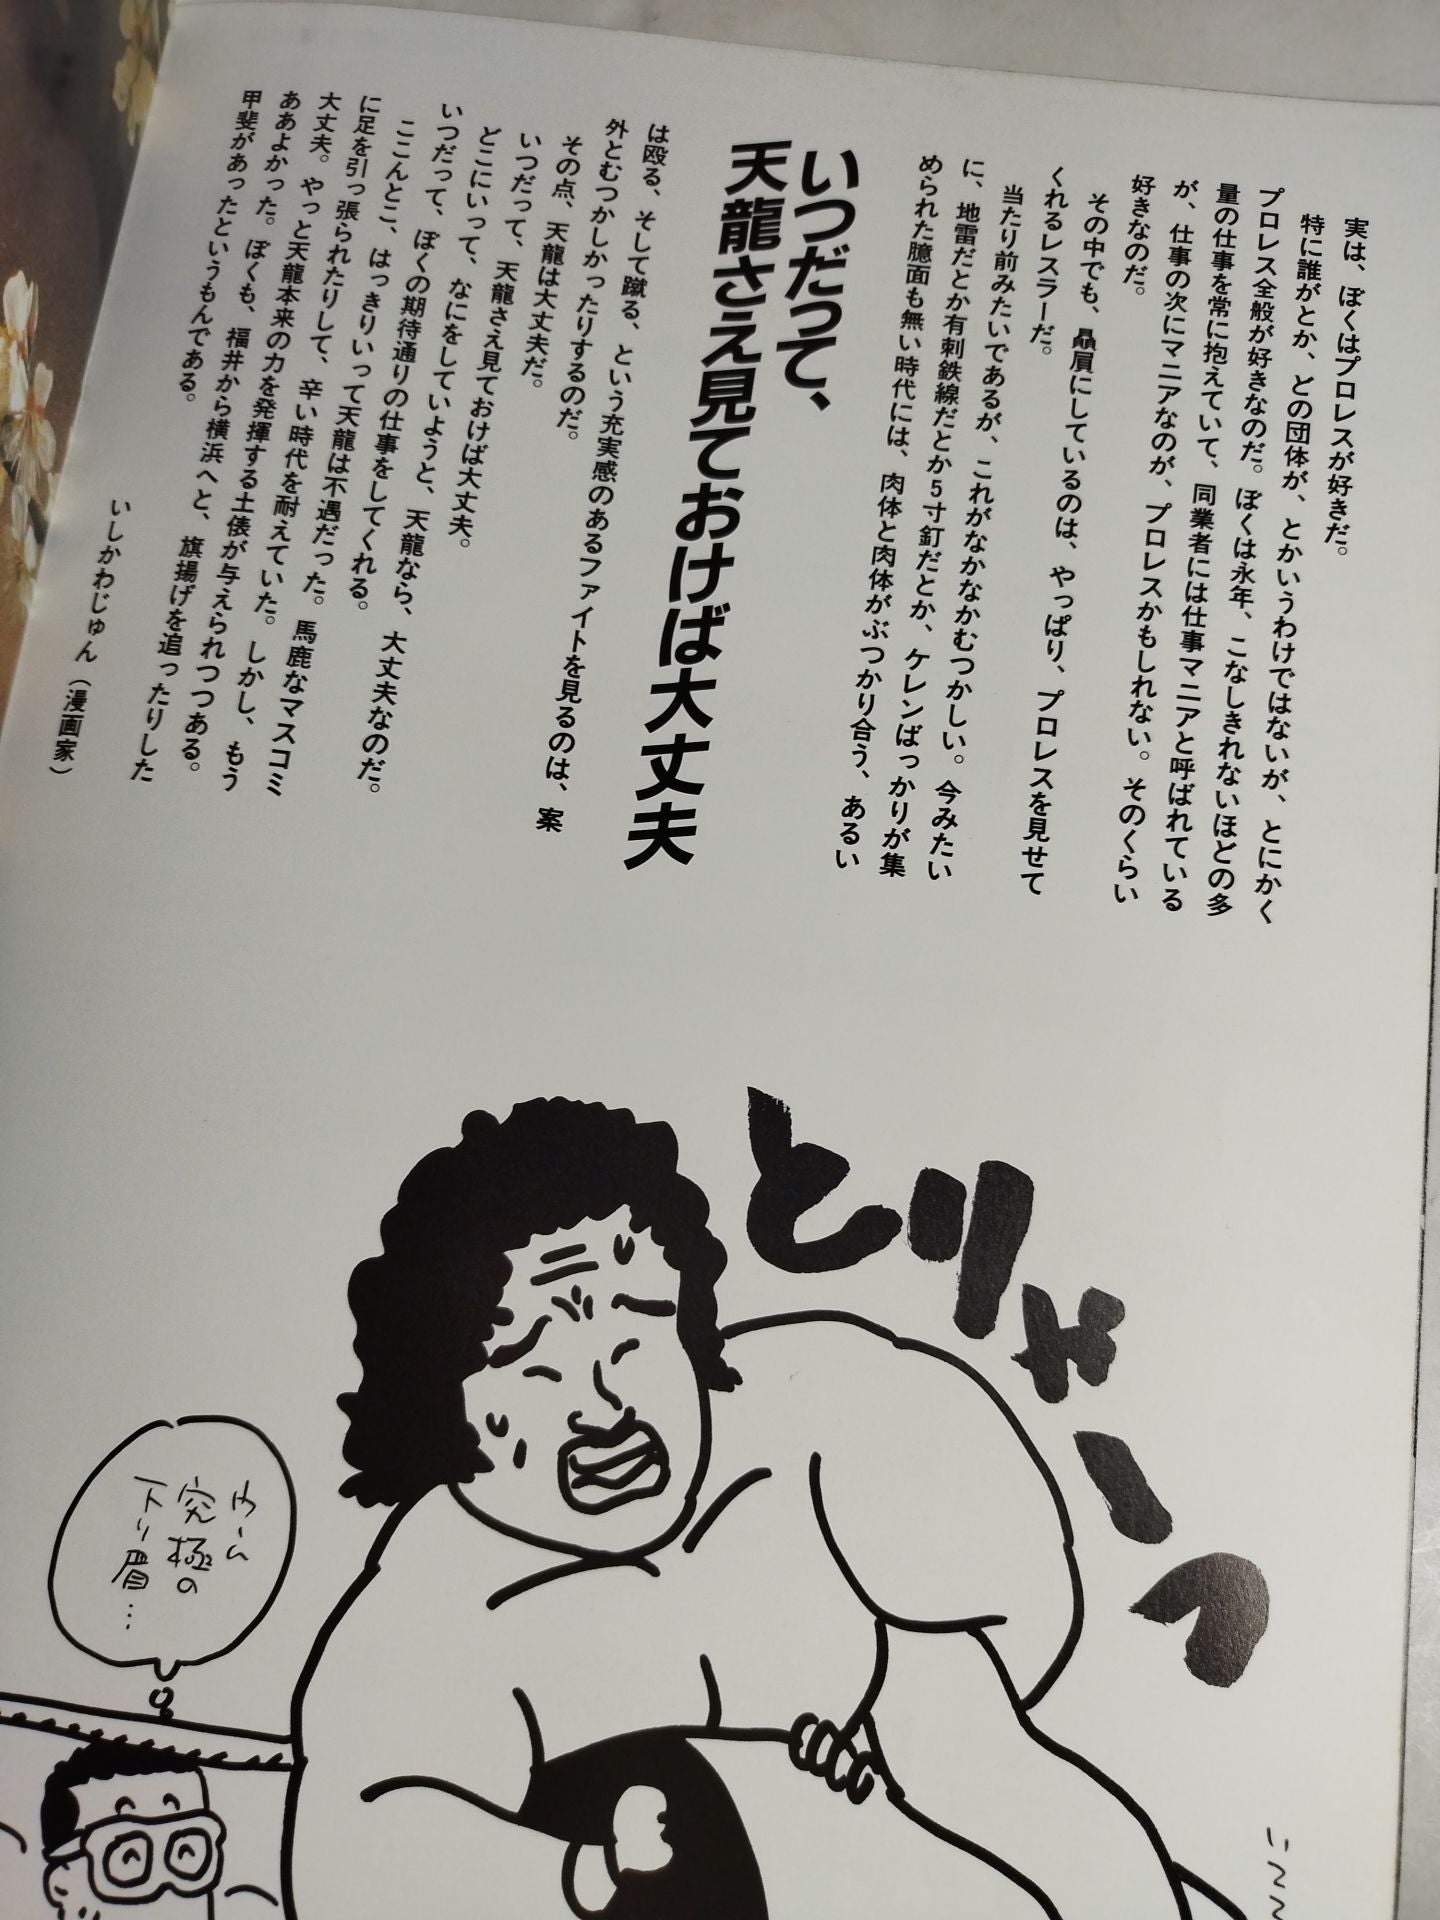 実は、ぼくはプロレスが好きだ。
特に誰がとか、どの団体が、とかいうわけではないが、とにかく
プロレス全般が好きなのだ。ぼくは永年、こなしきれないほどの多
量の仕事を常に抱えていて、同業者には仕事マニアと呼ばれている
が、仕事の次にマニアなのが、プロレスかもしれない。そのくらい
好きなのだ。
その中でも、贔屓にしているのは、やっぱり、プロレスを見せて
くれるレスラーだ。
当たり前みたいであるが、これがなかなかむつかしい。今みたい
に、地雷だとか有刺鉄線だとか5寸釘だとか、ケレンばっかりが集
められた臆面も無い時代には、肉体と肉体がぶつかり合う、あるい
いつだって、
天龍さえ見ておけば大丈夫
は殴る、そして蹴る、という充実感のあるファイトを見るのは、案
外とむつかしかったりするのだ。
その点、天龍は大丈夫だ。
いつだって、天龍さえ見ておけば大丈夫。
どこにいって、なにをしていようと、天龍なら、大丈夫なのだ。
いつだって、ぼくの期待通りの仕事をしてくれる。
ここんとこ、はっきりいって天龍は不遇だった。馬鹿なマスコミ
に足を引っ張られたりして、辛い時代を耐えていた。しかし、もう
大丈夫。やっと天龍本来の力を発揮する土俵が与えられつつある。
ああよかった。ぼくも、福井から横浜へと、旗揚げを追ったりした
甲斐があったというもんである。
いしかわじゅん（漫画家）
とりゃーっ
うーむ
究極の
下り眉…